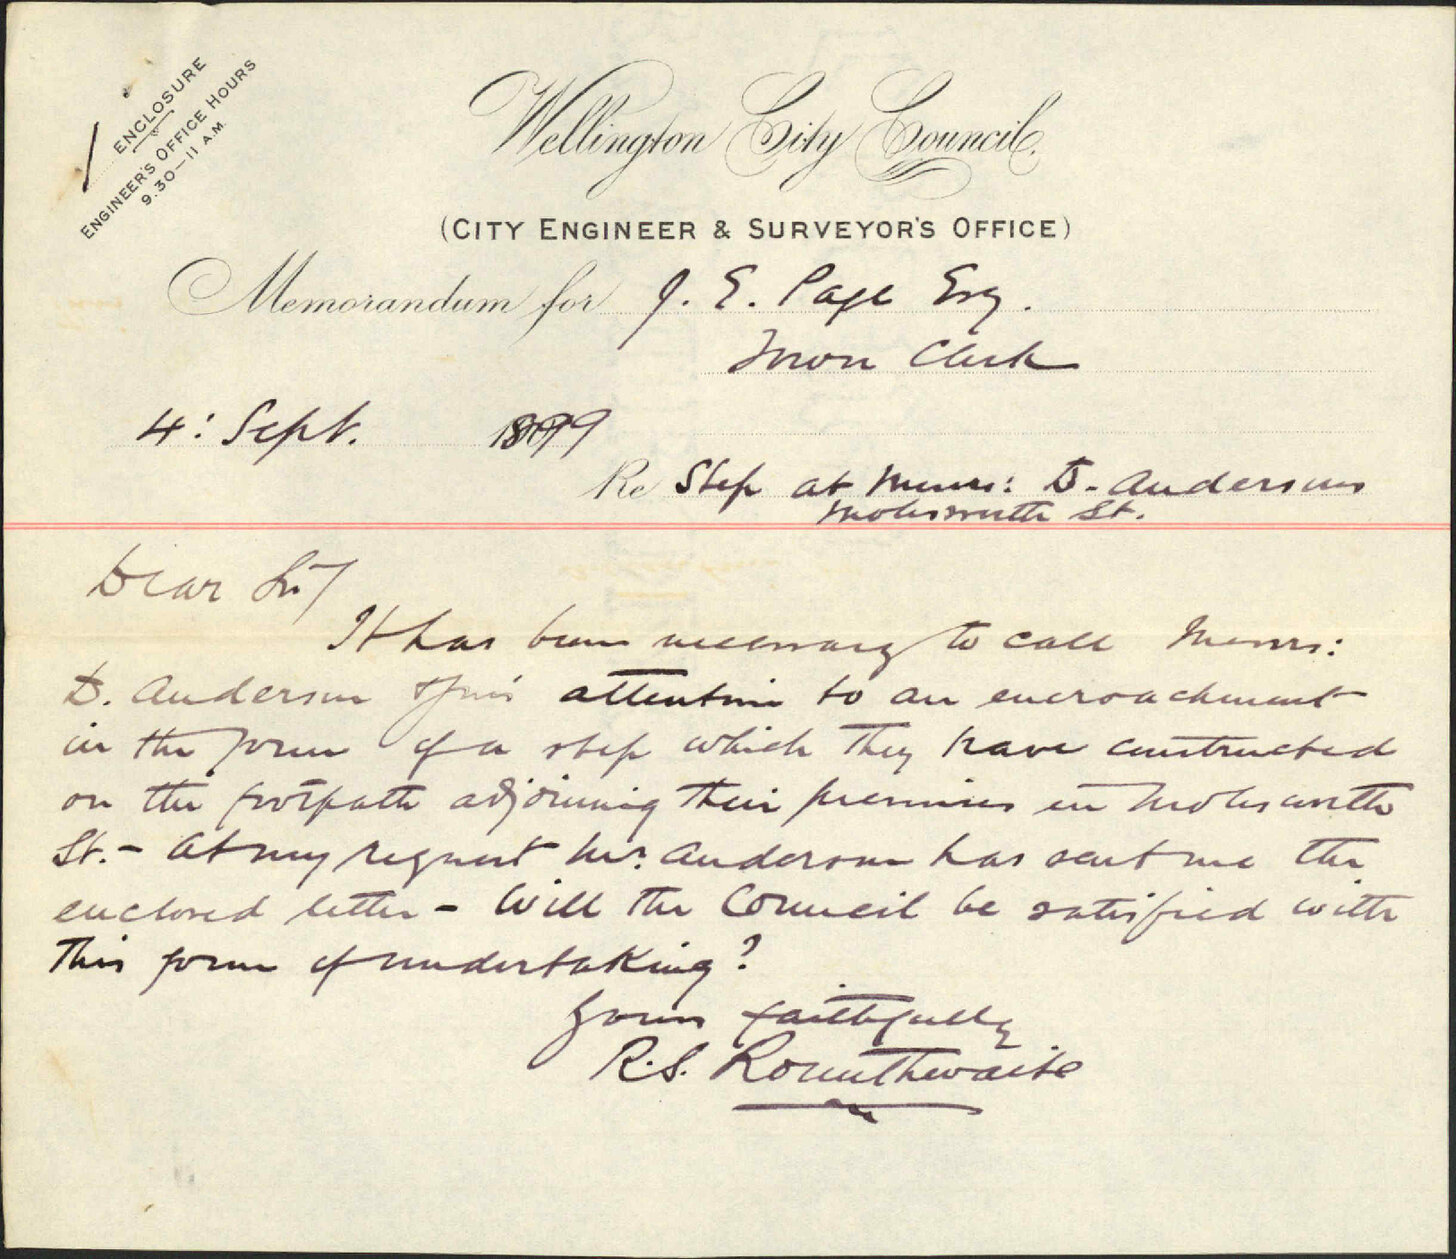 1 ENCLOSURE
ENGINEER'S OFFICE HOURS
9.30—11 A.M.
Wellington City Council.
(CITY ENGINEER & SURVEYOR'S OFFICE)
Memorandum for J. E. Page Esq.
Town Clerk
4: Sept. 1899
Re Step at Messrs: D. Andersons
Molesworth St.
Dear Sir/
It has been necessary to call Messrs:
D. Anderson & Son's attention to an encroachment
in the form of a step which they have constructed
on the footpath adjoining their premises in Molesworth
St. - At my request Mr. Anderson has sent me the
enclosed letter - Will the Council be satisfied with
this form of undertaking?
Yours faithfully
R.S. Rounthwaite